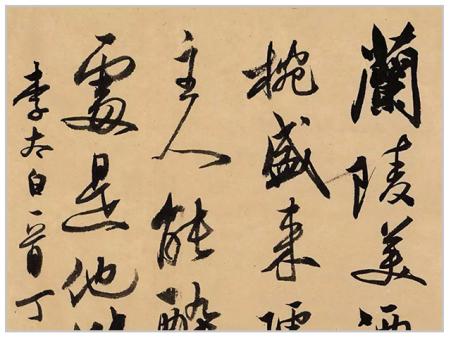 蘭陵美酒
椀盛来
主人能醉
處是他
李太白一首丁